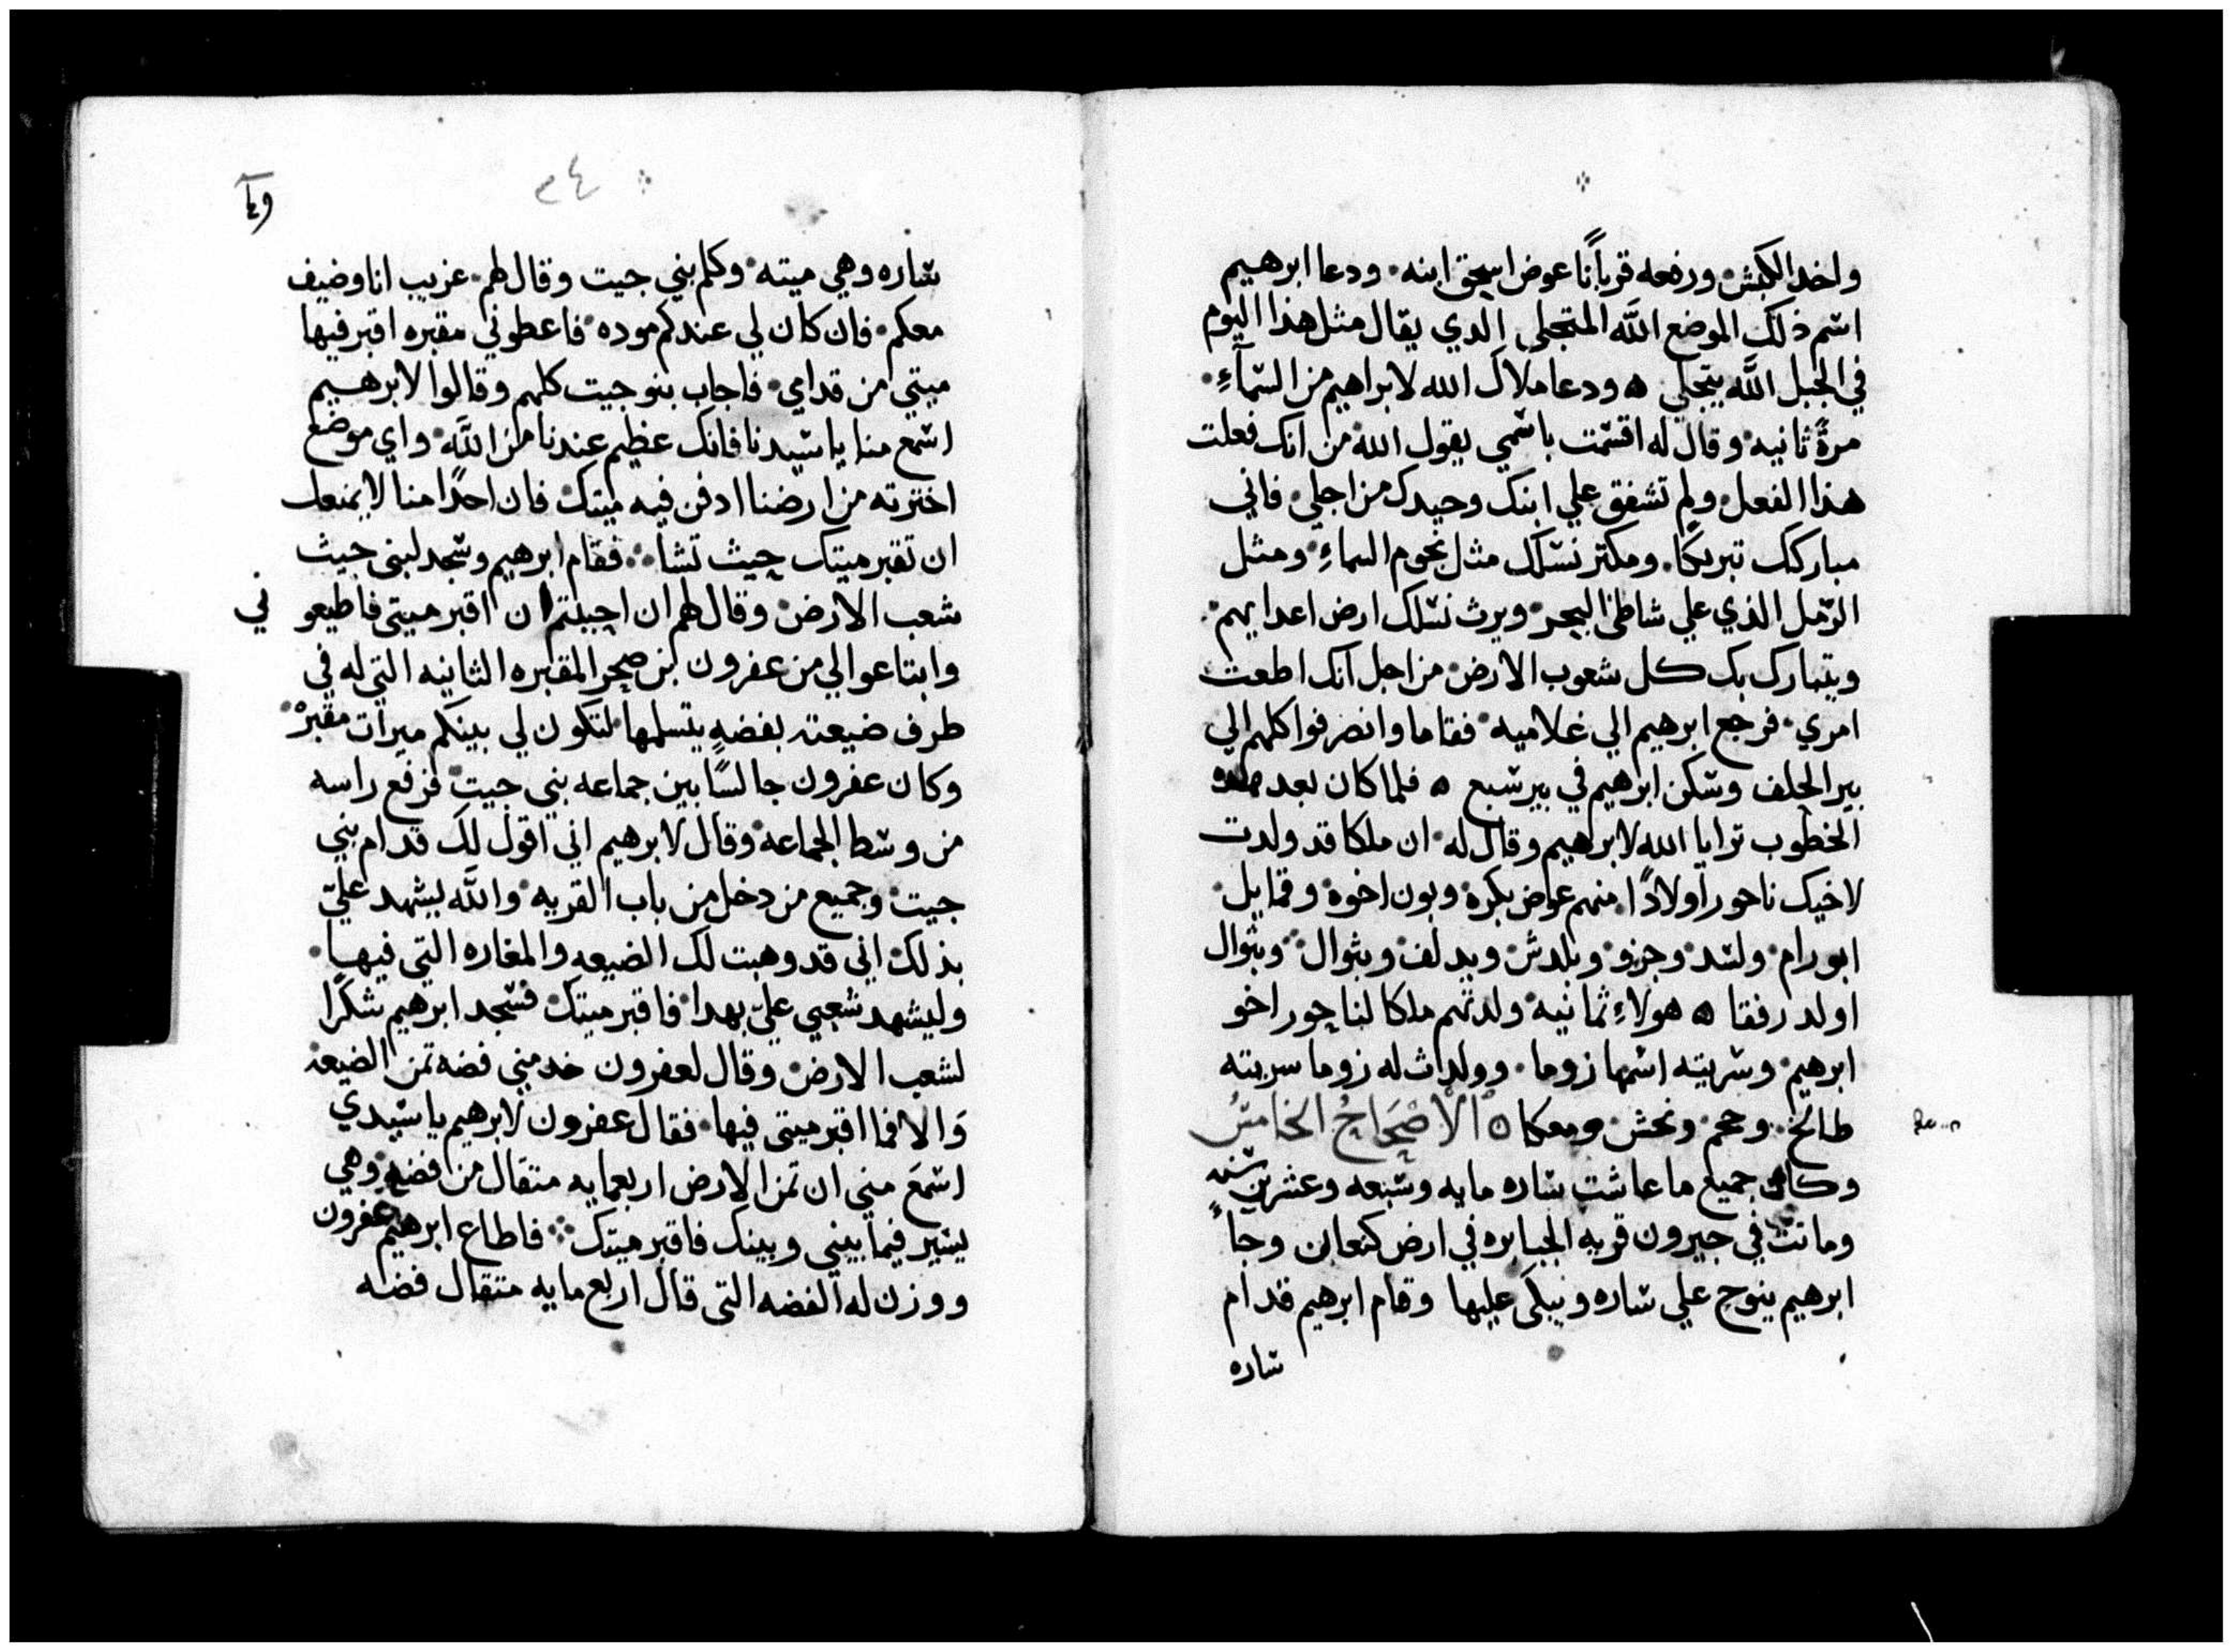 واخد الكبش ورفعه قرباناً عوض اسحق ابنه ودعا ابرهيم
اسم ذلك الموضع اللَّه المتجلي الدي يقال مثل هذا اليوم
في الجبل اللَّه يتجلي ودعا ملاك الله لابراهيم من السمآءِ
مرةً ثانيه وقال له اقسمت باسمي يقول الله من انك فعلت
هذا الفعل ولم تشفق علي ابنك وحيدك من اجلي فاني
مباركك تبريكا ومكتر نسلك مثل نجوم السماءِ ومثل
الرمل الذي علي شاطئ البحر ويرث نسلك ارض اعدايهم
ويتبارك بك كل شعوب الارض من اجل انك اطعت
امري فرجع ابرهيم الي غلاميه فقاما وانصرفوا كلهم الي
بير الحلف وسكن ابرهيم في بير سبع فلما كان بعد هذه
الخطوب ترايا الله لابرهيم وقال له ان ملكا قد ولدت
لاخيك ناحور اولادًا منهم عوض بكره وبون اخوه وقمايل
ابو رام ولسد وجزو وبلدش ويدلف وبثوال وبثوال
اولد رفقا هولاءِ ثمانيه ولدتهم ملكا لناحور اخو
ابرهيم وسريته اسمها زوما وولدت له زوما سريته
طالخ وحجم ونحش ومعكا الاصحاح الخامس
وكان جميع ما عاشت ساره مايه وسبعه وعشرين سنه
وماتت في حبرون قريه الجبابره في ارض كنعان وجاً
ابرهيم ينوح علي ساره ويبكي عليها وقام ابرهيم قدام
ساره
٢٤
ساره وهي ميته وكلم بني حيت وقال لهم غريب انا وضيف
معكم فان كان لي عندكم موده فاعطوني مقبره اقبر فيها
ميتي من قدامي فاجاب بنو حيت كلهم وقالوا لابرهيم
اسمع منا يا سيدنا فانك عظيم عندنا من اللَّه واي موضع
اخترته من ارضنا ادفن فيه ميتك فان احدًا منا لا يمنعك
ان تقبر ميتك حيث تشا فقام ابرهيم وسجد لبني حيث
شعب الارض وقال لهم ان احببتم ان اقبر ميتي فاطيعو ني
وابتاعوا لي من عفرون بن صحر المقبره الثانيه التي له في
طرف ضيعته بفضهٍ يتسلمها لتكون لي بينكم ميرات مقبره
وكان عفرون جالسًا بين جماعه بني حيت فرفع راسه
من وسط الجماعه وقال لابرهيم اني اقول لك قدام بني
حيت وجميع من دخل من باب القريه واللَّه يشهد عليّ
بذلك اني قد وهبت لك الضيعه والمغاره التي فيها
وليشهد شعبي عليّ بهدا فاقبر ميتك فسجد ابرهيم شكرًا
لشعب الارض وقال لعفرون خد مني فضه تمن الضيعه
وَالا فما اقبر ميتي فيها فقال عفرون لابرهيم يا سيدي
اسمَع مني ان تمن الارض اربعمايه متقال من فضهٍ وهي
يسير فيما بيني وبينك فاقبر ميتك فاطاع ابرهيم عفرون
ووزن له الفضه التي قال اربع مايه متقال فضه